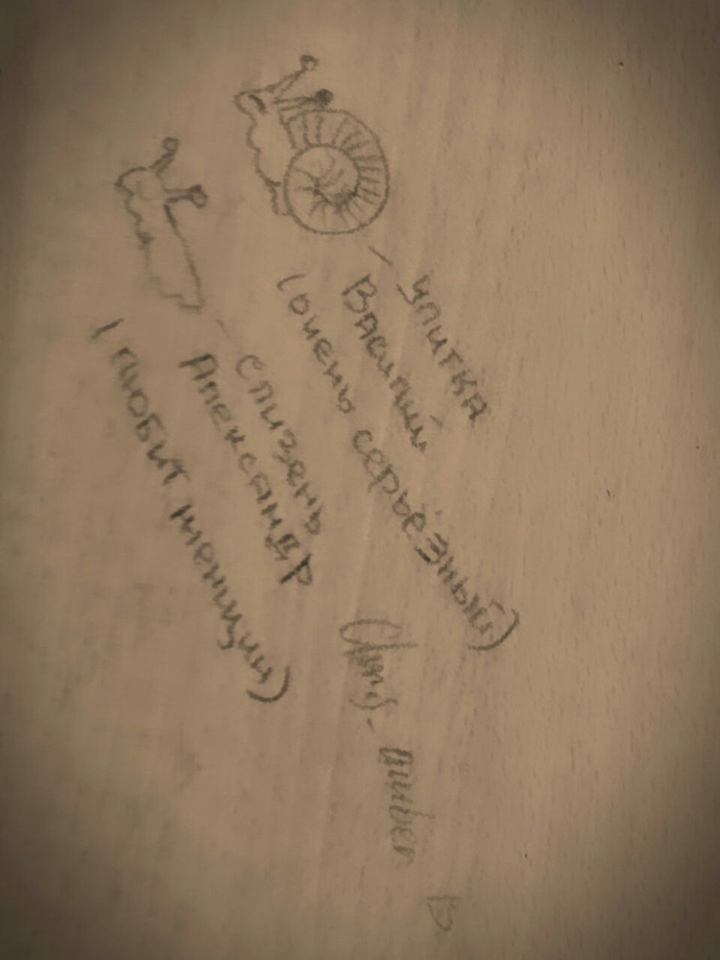 — улитка
Василий
(очень серьёзный)
— слизень
Александр
(любит женщин)